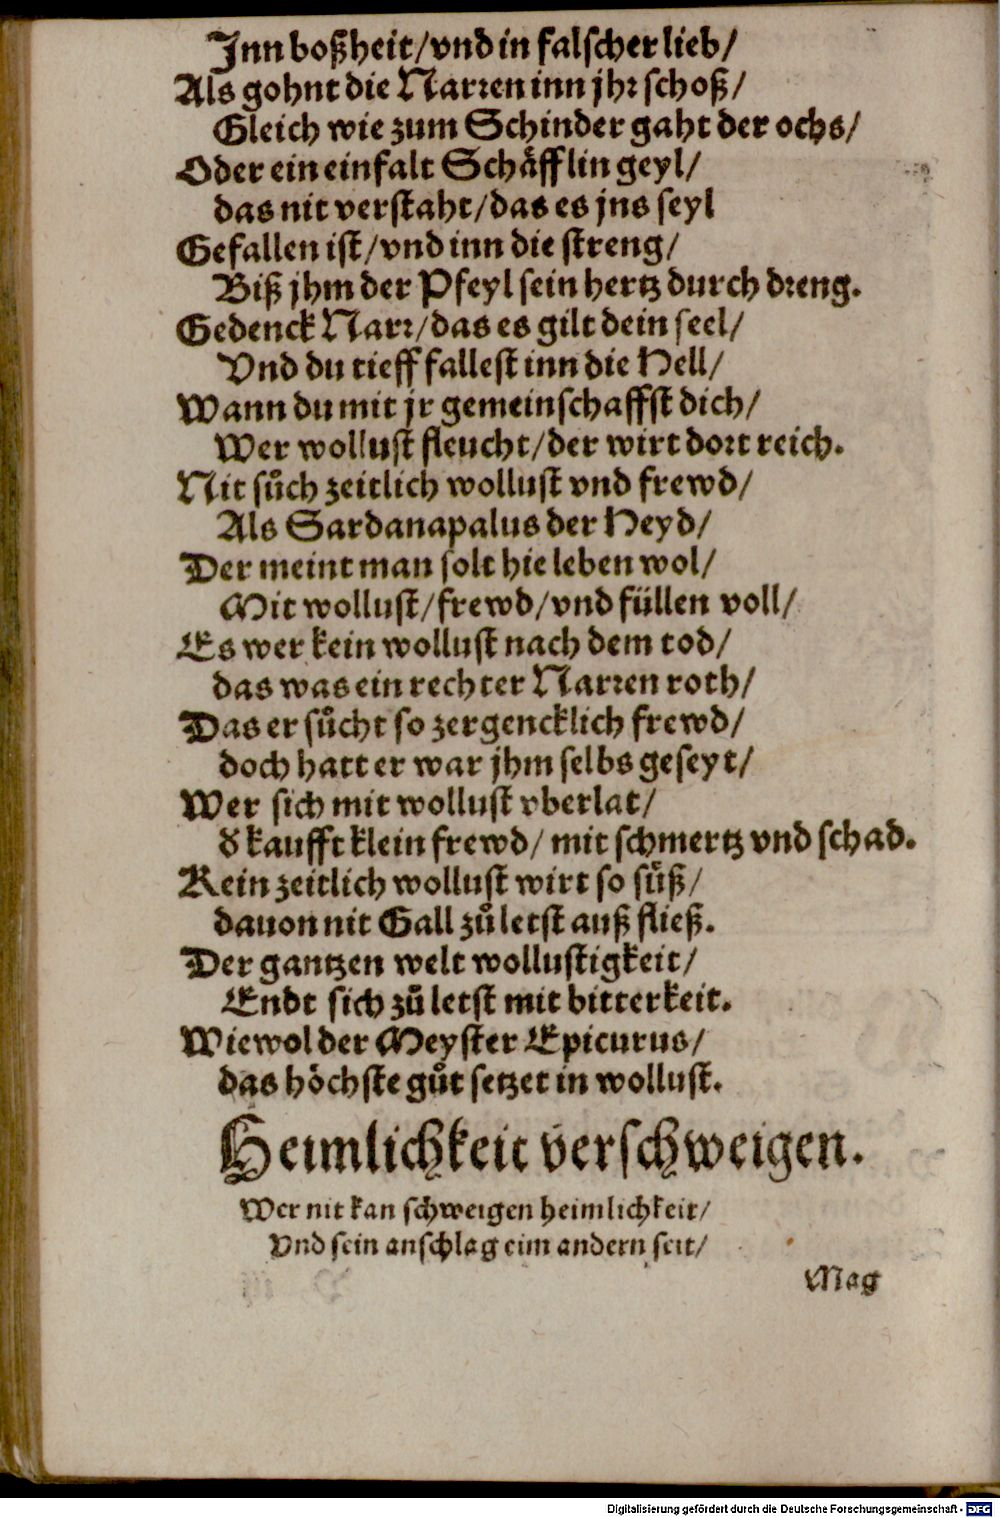 Jnn boßheit/vnd in falscher lieb/
Als gohnt die Narren inn jhr schoß/
Gleich wie zum Schinder gaht der ochs/
Oder ein einfalt Schäfflin geyl/
das nit verstaht/das es jns seyl
Gefallen ist/vnd inn die streng/
Biß jhm der Pfeyl sein hertz durch dreng.
Gedenck Narr/das es gilt dein seel/
Vnd du tieff fallest inn die Hell/
Wann du mit jr gemeinschaffst dich/
Wer wollust fleucht/der wirt dort reich.
Nit sůch zeitlich wollust vnd frewd/
Als Sardanapalus der Heyd/
Der meint man solt hie leben wol/
Mit wollust/frewd/vnd füllen voll/
Es wer kein wollust nach dem tod/
das was ein rechter Narren roth/
Das er sůcht so zergencklich frewd/
doch hatt er war jhm selbs geseyt/
Wer sich mit wollust vberlat/
d kaufft klein frewd/ mit schmertz vnd schad.
Kein zeitlich wollust wirt so süß/
dauon nit Gall zů letst auß fließ.
Der gantzen welt wollustigkeit/
Endt sich zů letst mit bitterkeit.
Wiewol der Meyster Epicurus/
das höchste gůt setzet in wollust.
Heimlichkeit verschweigen.
Wer nit kan schweigen heimlichkeit/
Vnd sein anschlag eim andern seit/
Mag
Digitalisierung gefördert durch die Deutsche Forschungsgemeinschaft - DFG